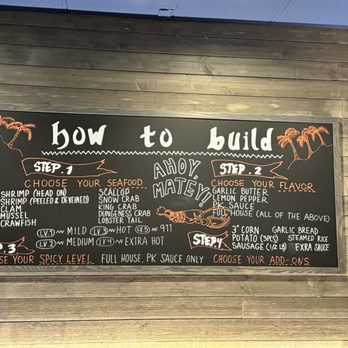 how to build
AHOY,
MATEY!
STEP. 1
CHOOSE YOUR SEAFOOD
SHRIMP (HEAD ON)
SHRIMP (PEELED & DEVEINED)
CLAM
MUSSEL
CRAWFISH
SCALLOP
SNOW CRAB
KING CRAB
DUNGENESS CRAB
LOBSTER TAIL
STEP. 2
CHOOSE YOUR FLAVOR
GARLIC BUTTER
LEMON PEPPER
PK SAUCE
FULL HOUSE (CALL OF THE ABOVE)
P.3
LV.1 - MILD LV.3 - HOT LV.5 - 911
LV.2 - MEDIUM LV.4 - EXTRA HOT
SE YOUR SPICY LEVEL FULL HOUSE, PK SAUCE ONLY
STEP4
3" CORN GARLIC BREAD
POTATO (3PCS) STEAMED RICE
SAUSAGE (1/2 LB) EXRA SAUCE
CHOOSE YOUR ADD-ONS